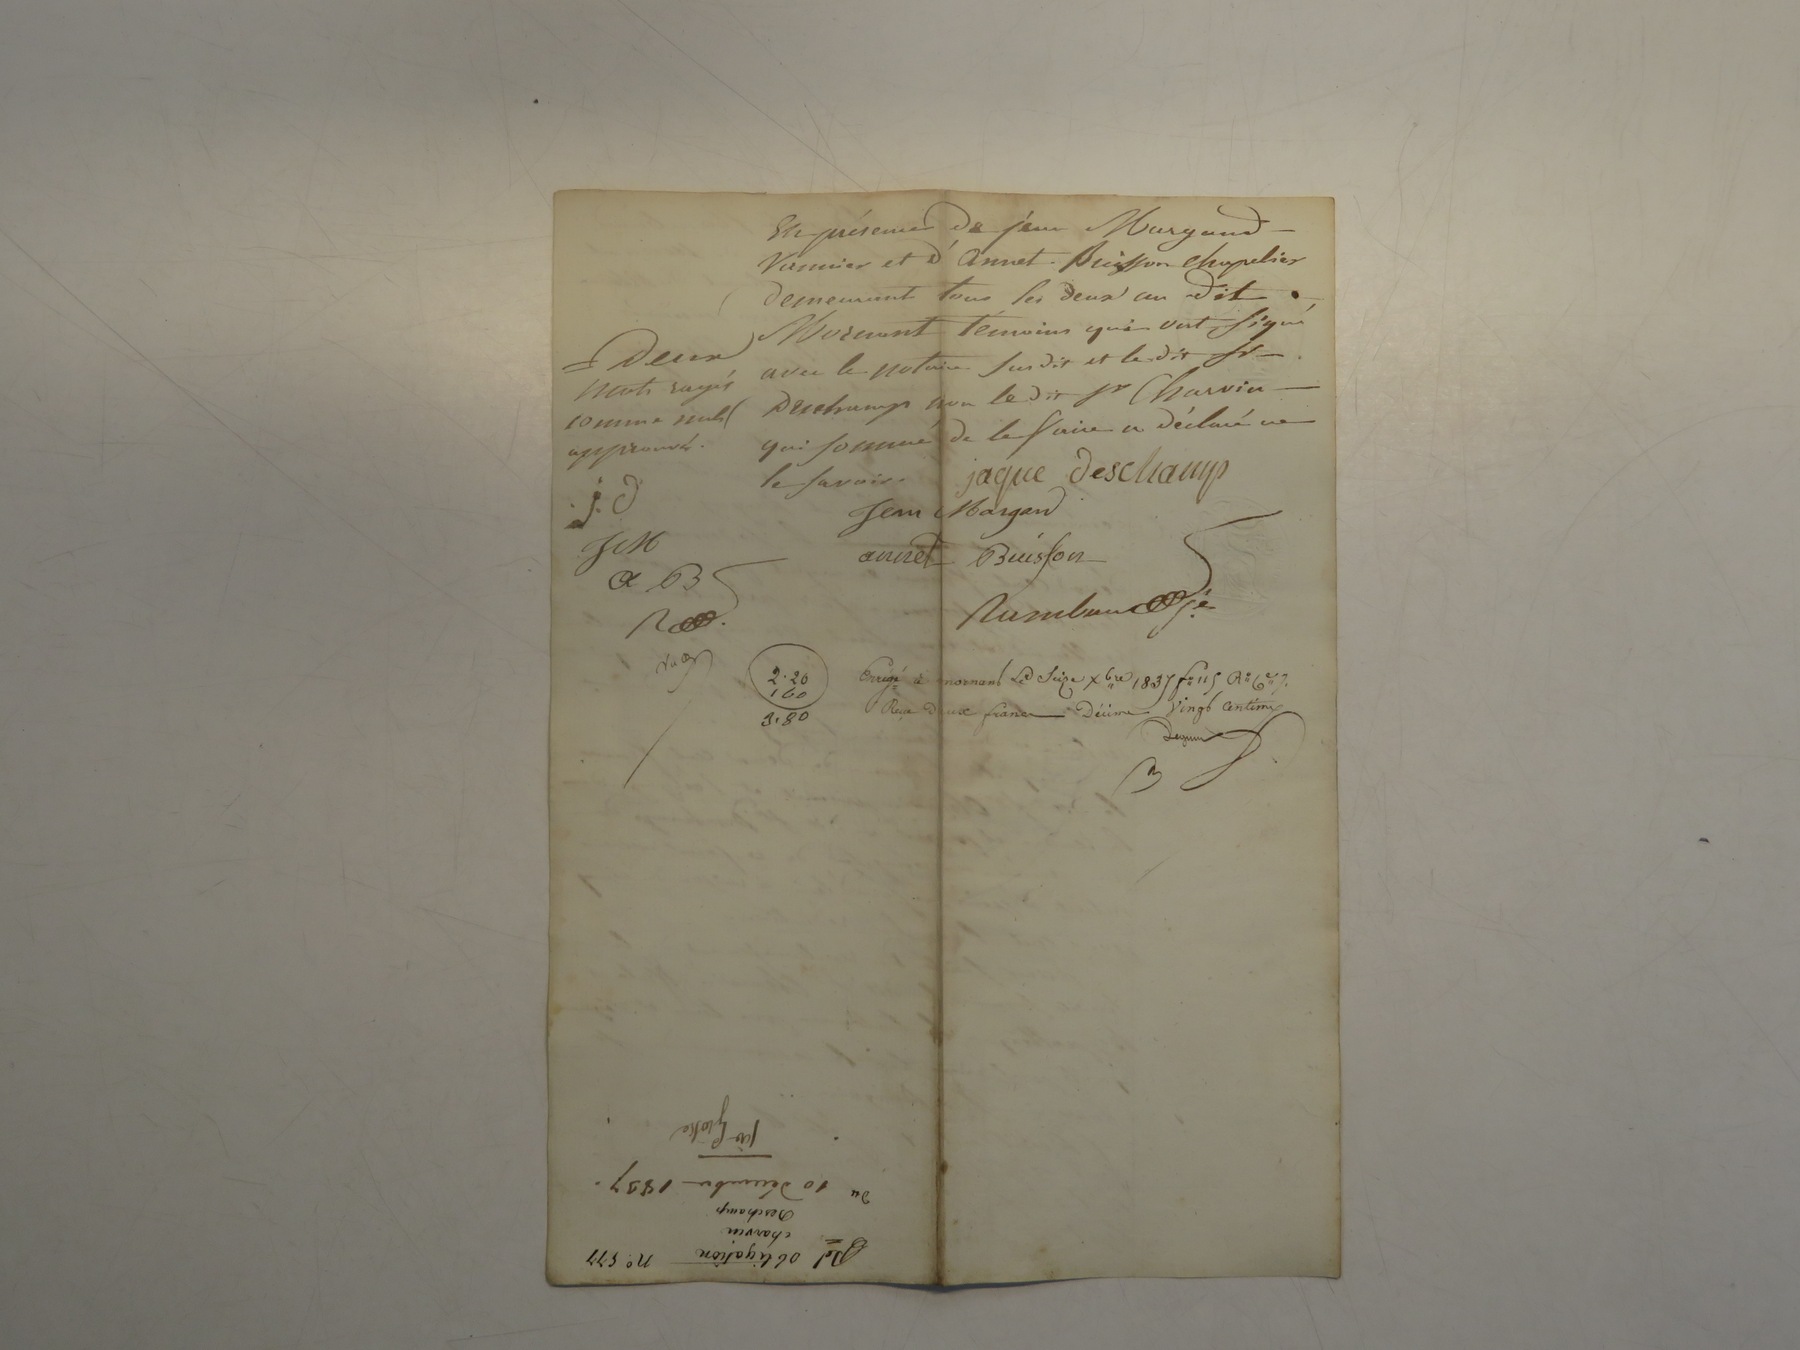 En présence de jean Margand
Vannier et d'Annet Buisson chapelier
demeurant tous les deux au dit
Mornant témoins qui ont signé
avec le notaire susdit et le dit sr
Deschamp non le dit sr Charvin
qui sommé de le faire a déclaré ne
le savoir. jaque deschamp
= Deux
mots rayés
comme nuls
approuvés.
j. d
JM
a B
R
Jean Margand
annet Buisson
2.20
160
3.80
Enregé à mornant Le Seize Xbre 1837 fo 115 Ro
Reçu deux francs Décime Vingt centimes
Rel obligation no 577
charvin
Deschamp
du 10 décembre 1837.